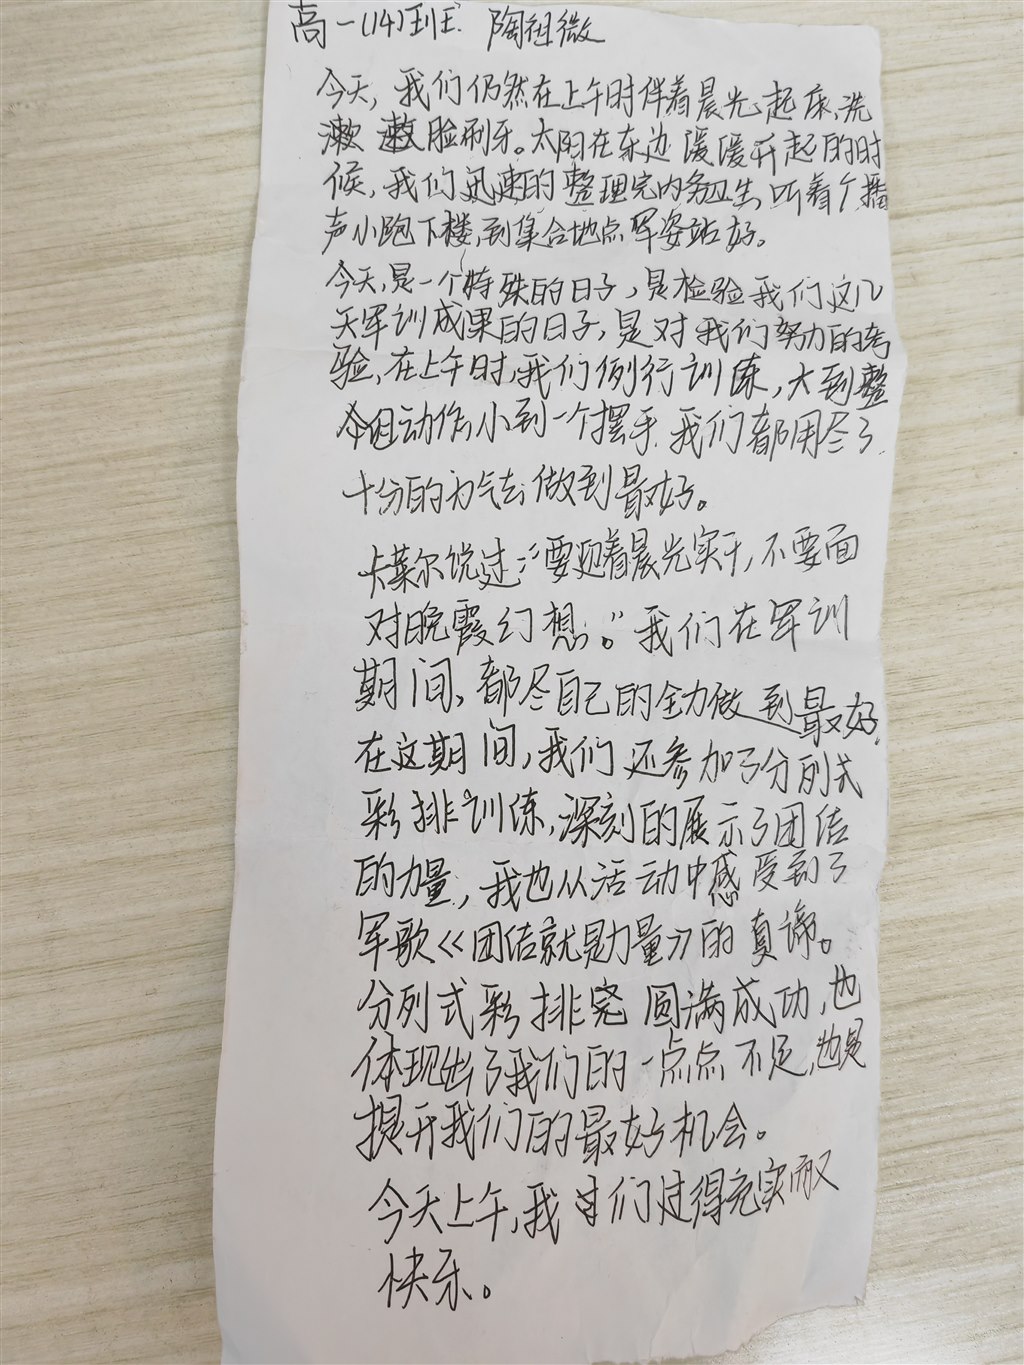 高一(14)班 陶祖微
今天,我们仍然在上午时伴着晨光起床,洗
漱 洗脸刷牙。太阳在东边缓缓升起的时
候,我们迅速的整理完内务卫生,叫着个播
声小跑下楼,到集合地点军姿站好。
今天,是一个特殊的日子,是检验我们这几
天军训成果的日子,是对我们努力的考
验,在上午时,我们例行训练,大到整
个组动作,小到一个摆手.我们都用尽了
十分的力气去做到最好。
卡莱尔说过:“要迎着晨光实干,不要面
对晚霞幻想。”我们在军训
期间,都尽自己的全力做到最好,
在这期间,我们还参加了分列式
彩排训练,深刻的展示了团结
的力量,我也从活动中感受到了
军歌《团结就是力量》的真谛。
分列式彩排完圆满成功,也
体现出了我们的一点点不足,也是
提升我们的最好机会。
今天上午,我们过得充实而又
快乐。